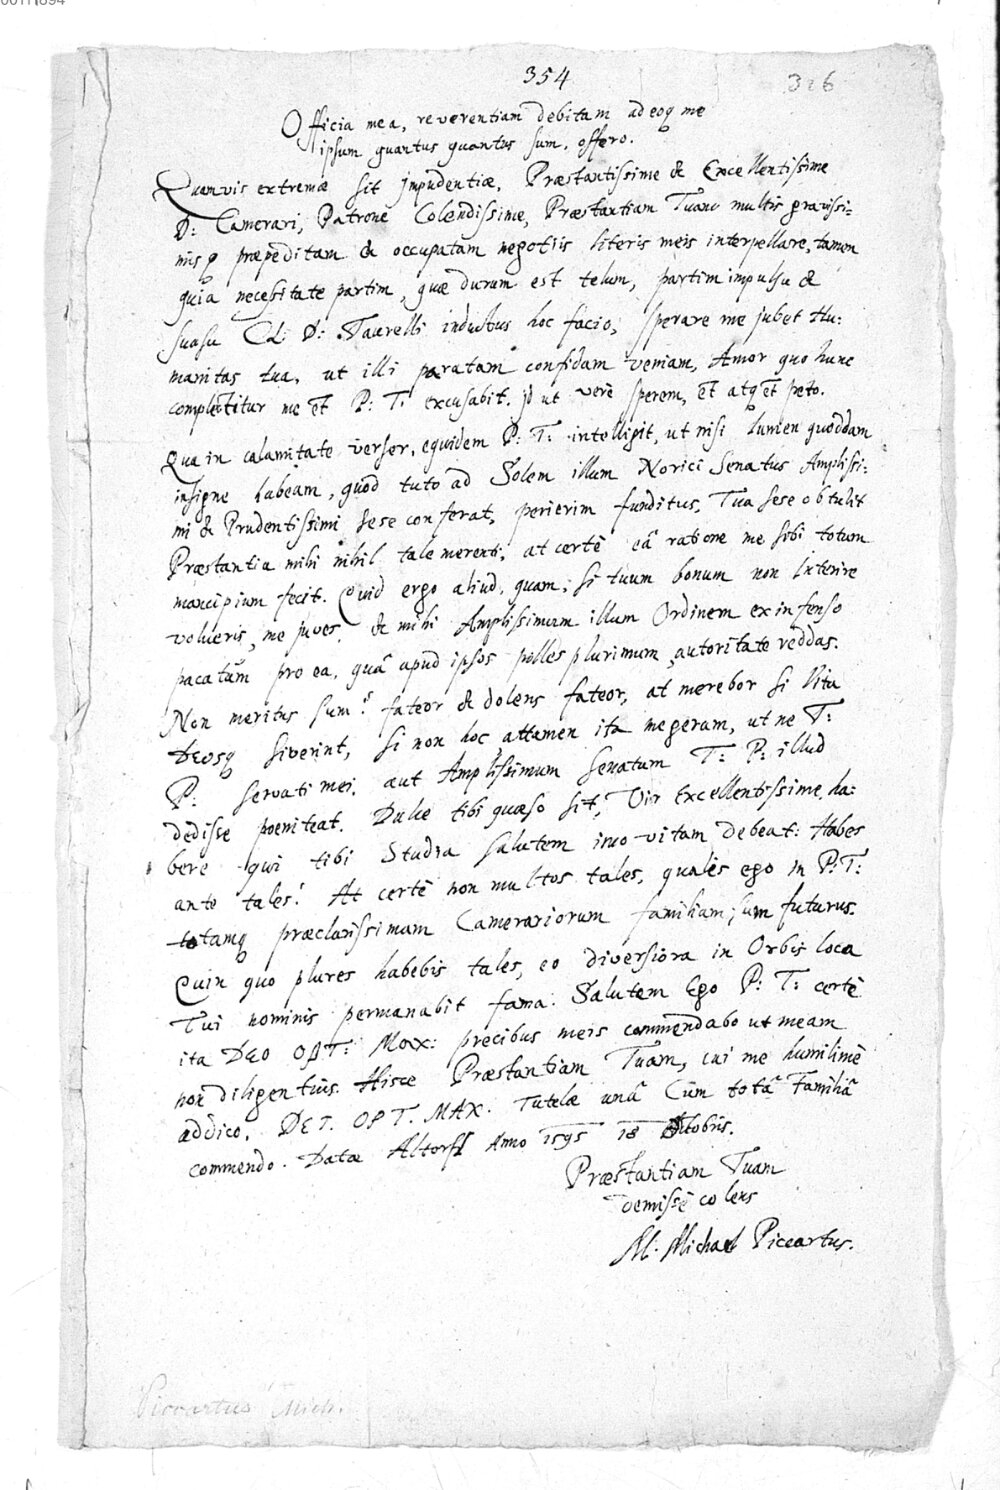 354
326
Officia mea, reverentiam debitam adeoq me
ipsum quantus quantus sum, offero.
Quamvis extremæ sit impudentiæ, Præstantissime & Excellentissime
D: Camerari, Patrone Colendissime, Præstantiam Tuam multis gravissi-
misq præpeditam & occupatam negotiis literis meis interpellare, tamen
quia necessitate partim, quæ durum est telum, partim impulsu &
suasu Cl: D: Taurelli inductus hoc facio, sperare me jubet Hu-
manitas tua, ut illi paratam confidam veniam, Amor quo hunc
complectitur me et P: T: excusabit. id ut verè sperem, et atq et peto.
Qua in calamitate verser, equidem P: T: intelligit, ut nisi lumen quoddam
insigne habeam, quod tuto ad Solem illum Norici Senatus Amplissi-
mi & Prudentissimi sese conferat, perierim funditus. Tua sese obtulit
Præstantia mihi nihil tale merenti, at certè eâ ratione me sibi totum
mancipium fecit. Quid ergo aliud, quam, si tuum bonum non interire
volueris, me juves, & mihi Amplissimum illum Ordinem ex infenso
pacatum pro ea, quâ apud ipsos polles plurimum, autoritate reddas.
Non meritus sum? fateor & dolens fateor, at merebor si vita
Deusq siverint, si non hoc attamen ita me geram, ut ne T:
P: servati mei, aut Amplissimum Senatum T: P: illud
dedisse poeniteat. Dulce tibi quæso sit, Vir Excellentissime, ha-
bere qui tibi Studia salutem imo vitam debeat: Habes
ante tales! At certè non multos tales, qualis ego in P: T:
totamq præclarissimam Camerariorum familiam, sum futurus.
Quin quo plures habebis tales, eo diversiora in Orbis loca
Tui nominis permanabit fama. Salutem Ego P: T: certè
ita DEO OPT: Max: precibus meis commendabo ut meam
non diligentius. Hisce Præstantiam Tuam, cui me humilimè
addico, DEI. OPT. MAX. Tutelæ unâ Cum totâ Familiâ
commendo. Datæ Altorffi Anno 1595 18 Octobris.
Præstantiam Tuam
demissè colens
M. Michael Piccartus.
Piccartus Mich.